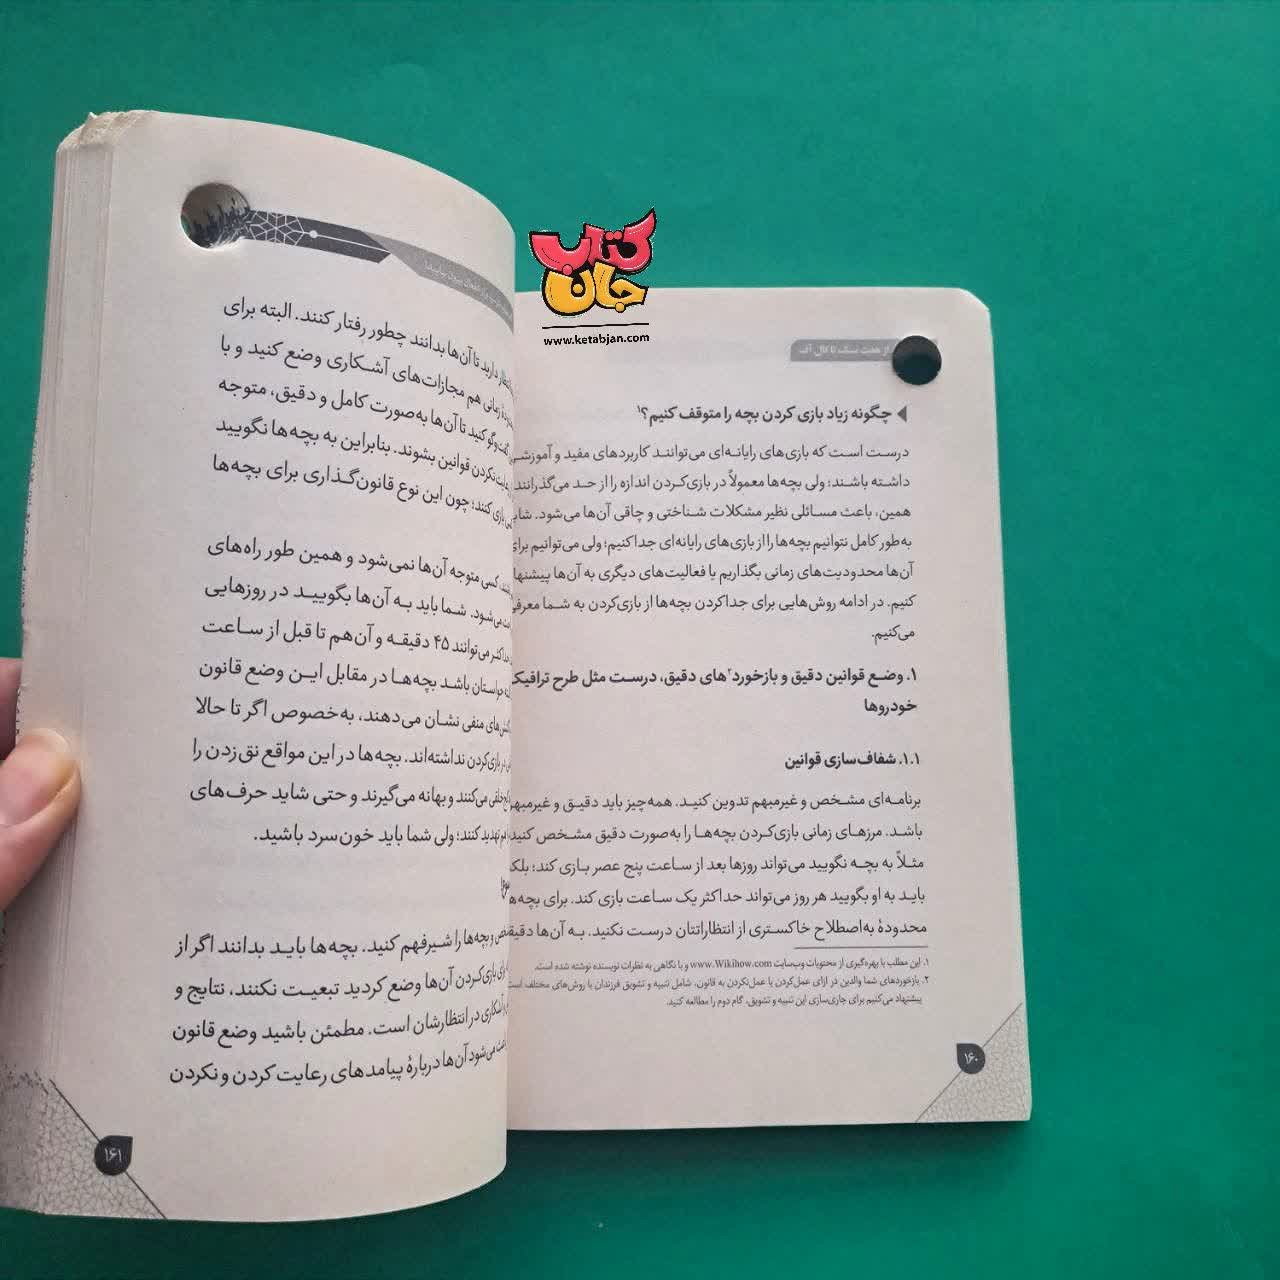 کتاب
جان
www.ketabjan.com
از هفت سنگ تا کال آف
چگونه زیاد بازی کردن بچه را متوقف کنیم؟۱
درست است که بازی‌های رایانه‌ای می‌توانند کاربردهای مفید و آموزشی
داشته باشند؛ ولی بچه‌ها معمولاً در بازی‌کردن اندازه را از حد می‌گذرانند
همین، باعث مسائلی نظیر مشکلات شناختی و چاقی آن‌ها می‌شود.
به‌طور کامل نتوانیم بچه‌ها را از بازی‌های رایانه‌ای جدا کنیم؛ ولی می‌توانیم برای
آن‌ها محدودیت‌های زمانی بگذاریم یا فعالیت‌های دیگری به آن‌ها
کنیم. در ادامه روش‌هایی برای جداکردن بچه‌ها از بازی‌کردن به شما معرفی
می‌کنیم.
۱. وضع قوانین دقیق و بازخورد۲های دقیق، درست مثل طرح ترافیک
خودروها
۱.۱. شفاف‌سازی قوانین
برنامه‌ای مشخص و غیرمبهم تدوین کنید. همه‌چیز باید دقیق و غیرمبهم
باشد. مرزهای زمانی بازی‌کردن بچه‌ها را به‌صورت دقیق مشخص کنید
مثلاً به بچه نگویید می‌تواند روزها بعد از ساعت پنج عصر بازی کند؛
باید به او بگویید هر روز می‌تواند حداکثر یک ساعت بازی کند. برای
محدودهٔ به‌اصطلاح خاکستری از انتظاراتتان درست نکنید. به آن‌ها
۱. این مطلب با بهره‌گیری از محتویات وب‌سایت www.Wikihow.com و با نگاهی به نظرات نویسنده نوشته شده است.
۲. بازخوردهای شما والدین در ازای عمل‌کردن یا عمل‌نکردن به قانون، شامل تنبیه و تشویق فرزندان با روش‌های مختلف است
پیشنهاد می‌کنیم برای جاری‌سازی این تنبیه و تشویق، گام دوم را مطالعه کنید.
۱۶۰
دارید تا آن‌ها بدانند چطور رفتار کنند. البته برای
زمانی هم مجازات‌های آشکاری وضع کنید و با
گفت‌وگو کنید تا آن‌ها به‌صورت کامل و دقیق، متوجه
نکردن قوانین بشوند. بنابراین به بچه‌ها نگویید
بازی کنند؛ چون این نوع قانون‌گذاری برای بچه‌ها
کسی متوجه آن‌ها نمی‌شود و همین طور راه‌های
می‌شود. شما باید به آن‌ها بگویید در روزهایی
حداکثر می‌توانند ۴۵ دقیقه و آن‌هم تا قبل از ساعت
حواستان باشد بچه‌ها در مقابل این وضع قانون
منفی نشان می‌دهند، به‌خصوص اگر تا حالا
بازی‌کردن نداشته‌اند. بچه‌ها در این مواقع نق‌زدن را
می‌کنند و بهانه می‌گیرند و حتی شاید حرف‌های
تهدید کنند؛ ولی شما باید خون‌سرد باشید.
و بچه‌ها را شیرفهم کنید. بچه‌ها باید بدانند اگر از
بازی‌کردن آن‌ها وضع کردید تبعیت نکنند، نتایج و
آشکاری در انتظارشان است. مطمئن باشید وضع قانون
می‌شود آن‌ها دربارهٔ پیامدهای رعایت کردن و نکردن
۱۶۱